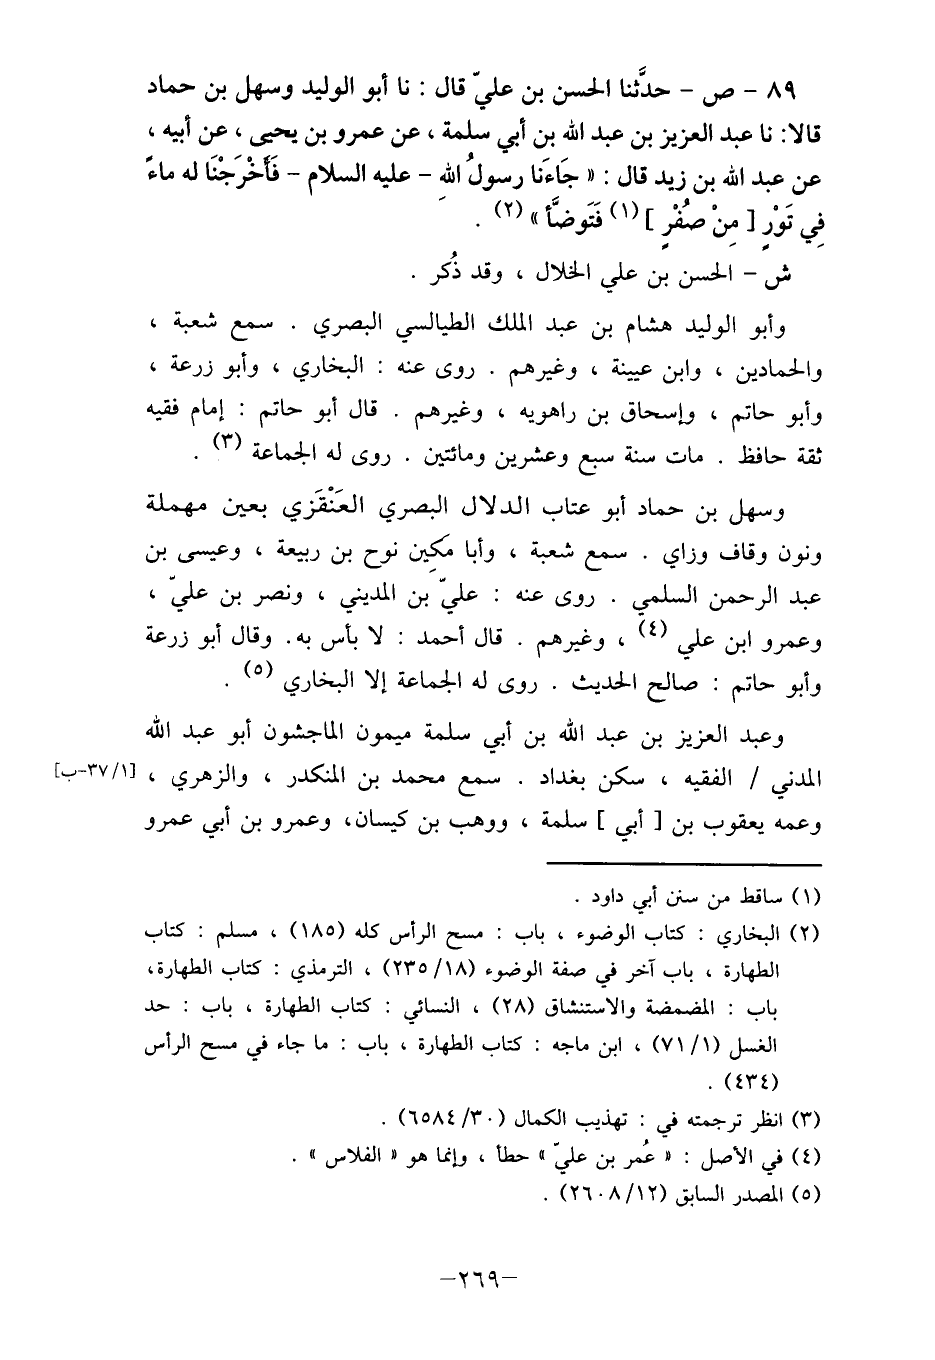 ٨٩ - ص - حدَّثنا الحسن بن عليّ قال : نا أبو الوليد وسهل بن حماد
قالا: نا عبد العزيز بن عبد الله بن أبي سلمة ، عن عمرو بن يحيى ، عن أبيه ،
عن عبد الله بن زيد قال : « جَاءَنا رسولُ اللهِ - عليه السلام - فَأَخْرَجْنَا له ماءً
فِي تَوْرٍ [ مِنْ صُفْرٍ ] (١) فَتَوضَّأَ » (٢) .
ش - الحسن بن علي الخلال ، وقد ذُكر .
وأبو الوليد هشام بن عبد الملك الطيالسي البصري . سمع شعبة ،
والحمادين ، وابن عيينة ، وغيرهم . روى عنه : البخاري ، وأبو زرعة ،
وأبو حاتم ، وإسحاق بن راهويه ، وغيرهم . قال أبو حاتم : إمام فقيه
ثقة حافظ . مات سنة سبع وعشرين ومائتين . روى له الجماعة (٣) .
وسهل بن حماد أبو عتاب الدلال البصري العَنْقَزي بعين مهملة
ونون وقاف وزاي . سمع شعبة ، وأبا مكِين نوح بن ربيعة ، وعيسى بن
عبد الرحمن السلمي . روى عنه : عليّ بن المديني ، ونصر بن عليّ ،
وعمرو ابن علي (٤) ، وغيرهم . قال أحمد : لا بأس به. وقال أبو زرعة
وأبو حاتم : صالح الحديث . روى له الجماعة إلا البخاري (٥) .
وعبد العزيز بن عبد الله بن أبي سلمة ميمون الماجشون أبو عبد الله
المدني / الفقيه ، سكن بغداد . سمع محمد بن المنكدر ، والزهري ، [٣٧/١-ب]
وعمه يعقوب بن [ أبي ] سلمة ، ووهب بن كيسان، وعمرو بن أبي عمرو
(١) ساقط من سنن أبي داود .
(٢) البخاري : كتاب الوضوء ، باب : مسح الرأس كله (١٨٥) ، مسلم : كتاب
الطهارة ، باب آخر في صفة الوضوء (٢٣٥/١٨) ، الترمذي : كتاب الطهارة،
باب : المضمضة والاستنشاق (٢٨) ، النسائي : كتاب الطهارة ، باب : حد
الغسل (٧١/١) ، ابن ماجه : كتاب الطهارة ، باب : ما جاء في مسح الرأس
(٤٣٤) .
(٣) انظر ترجمته في : تهذيب الكمال (٦٥٨٤/٣٠) .
(٤) في الأصل : « عُمر بن عليّ » خطأ ، وإنما هو « الفلاس » .
(٥) المصدر السابق (٢٦٠٨/١٢) .
-٢٦٩-